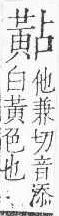 黇
他兼切音添
白黃色也